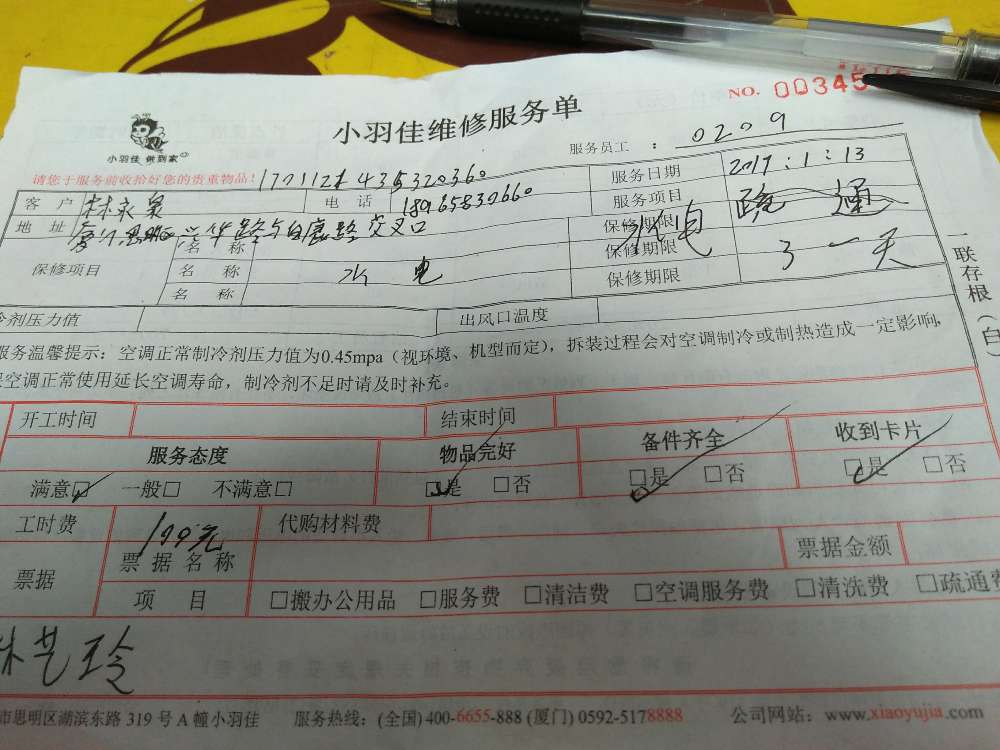 NO. 00345
小羽佳 做到家
小羽佳维修服务单
服务员工 : 0209
请您于服务前收拾好您的贵重物品!
客户 林永泉 电话 18965830660 服务日期 2017.1.13
地址 路与 路交叉口 服务项目 水电疏通
保修项目 名称 保修期限
名称 水电 保修期限 3一天
名称 保修期限
冷剂压力值 出风口温度
服务温馨提示:空调正常制冷剂压力值为0.45mpa(视环境、机型而定),拆装过程会对空调制冷或制热造成一定影响,
空调正常使用延长空调寿命,制冷剂不足时请及时补充。
一联存根(白)
开工时间 结束时间
服务态度 物品完好 备件齐全 收到卡片
满意□ 一般□ 不满意□ □是 □否 □是 □否 □是 □否
工时费 199元 代购材料费
票据 票据名称 票据金额
项目 □搬办公用品 □服务费 □清洁费 □空调服务费 □清洗费 □疏通费
林艺玲
市思明区湖滨东路 319 号 A 幢小羽佳 服务热线:(全国) 400-6655-888 (厦门) 0592-5178888 公司网站:www.xiaoyujia.com